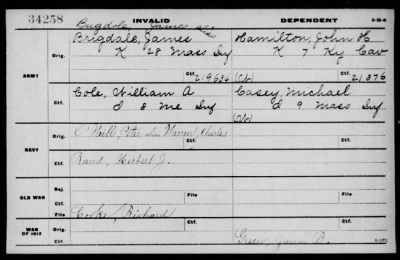 34258 INVALID DEPENDENT
Bugdole, James alias
Brigdale, James Hamilton, John H
ARMY Orig. K 28 Mass Inf K 7 Ky Cav
Ctf. 219636 (Ch) Ctf. 21376
Cole, William A Casey, Michael
Orig. D 8 Me Inf D 9 Mass Inf
Ctf. (Ch) Ctf.
O'Neill, Peter alias Warren, Charles
NAVY Orig.
Ctf. Ctf.
Rand, Herbert J.
Orig.
Ctf. Ctf.
OLD WAR Rej. File File
Ctf.
Cooke, Richard
WAR OF 1812 Orig. File
Ctf. Ctf.
Green, James R.